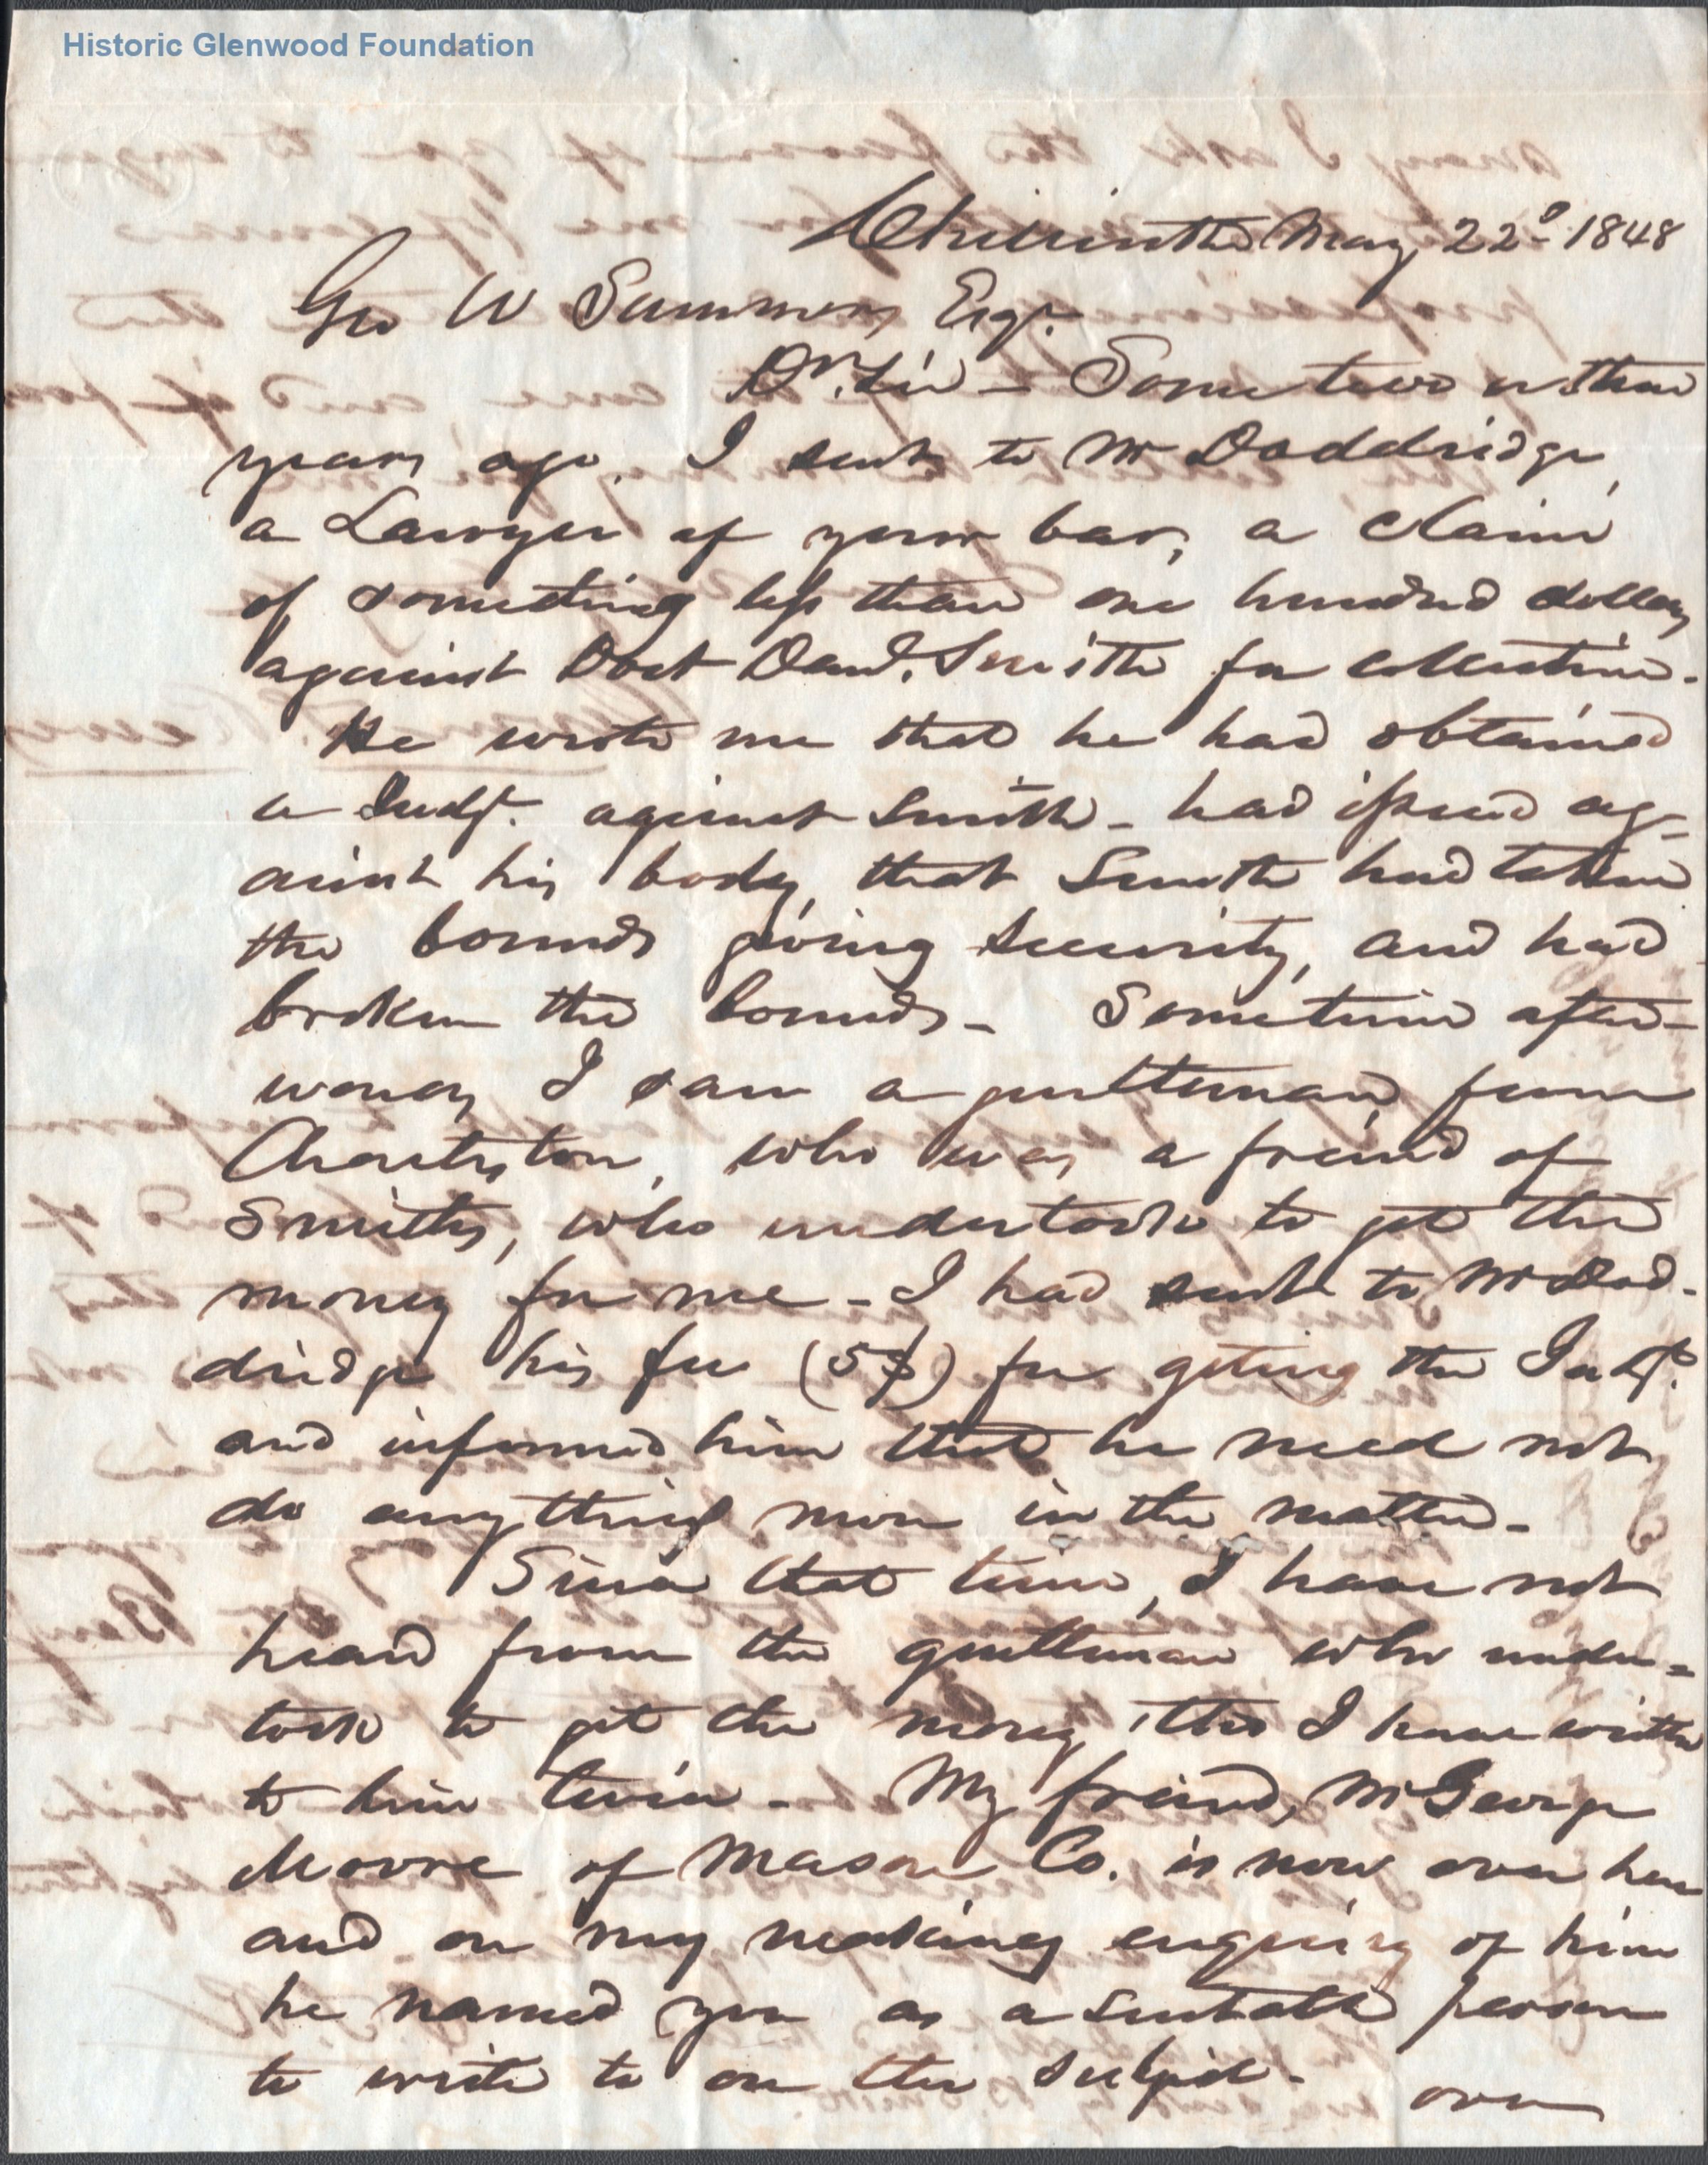 Historic Glenwood Foundation
Chillicothe May 22d 1848
Geo W Summers Esqr.
Dr. Sir - Some two or three
years ago, I sent to Mr Doddridge,
a Lawyer of your bar, a claim
of something less than one hundred dollars
against Doct Danl. Smith for collection.
He wrote me that he had obtained
a Judgt. against Smith - had issued ag-
ainst his body, that Smith had taken
the bounds giving security, and had
broken the bounds - Sometime after-
wards, I saw a gentleman, from
Charleston, who was a freind of
Smiths, who undertook to get the
money for me - I had sent to Mr Dod-
dridge his fee (5$) for geting the Judgt.
and informed him that he need not
do anything more in the matter -
Since that time, I have not
heard from the gentleman who under-
took to get the money, tho I have written
to him twice - My freind, Mr George
Moore of Mason Co. is now over here
and on my making enquiry of him
he named you as a suitable person
to write to on the subject -
over